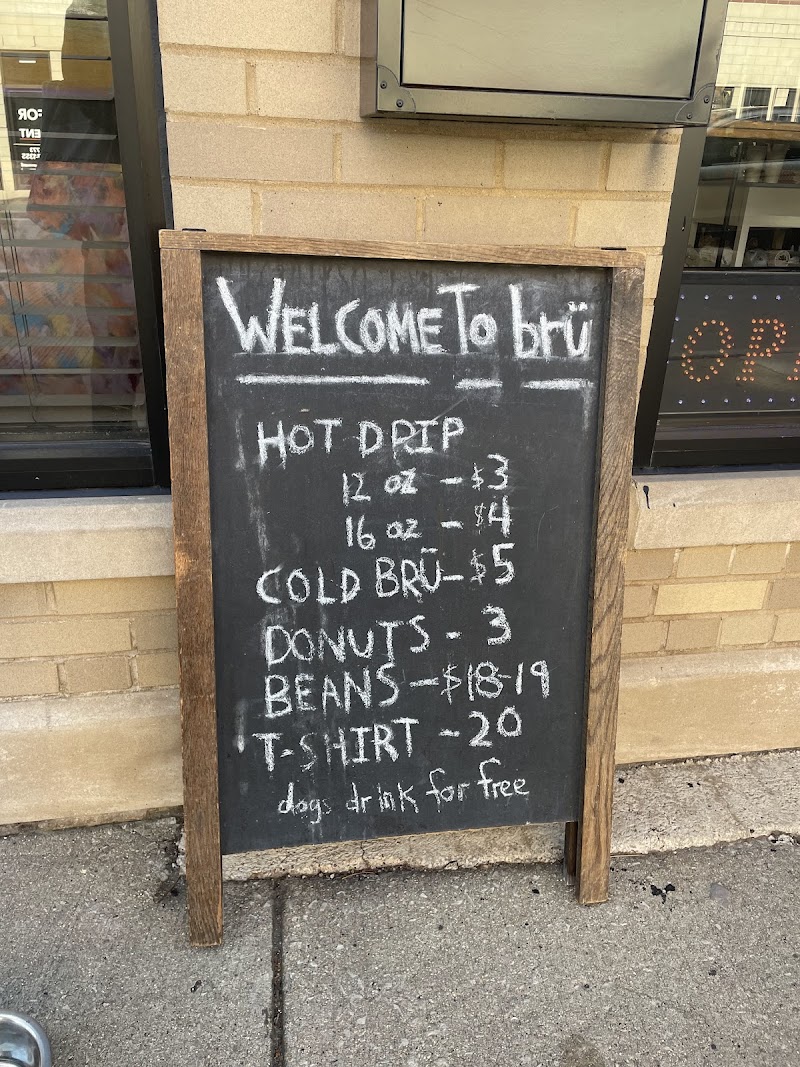 WELCOME To brü
HOT DRIP
12 oz - $3
16 oz - $4
COLD BRÜ - $5
DONUTS - 3
BEANS - $18-19
T-SHIRT - 20
dogs drink for free
FOR
ENT
773
OPE